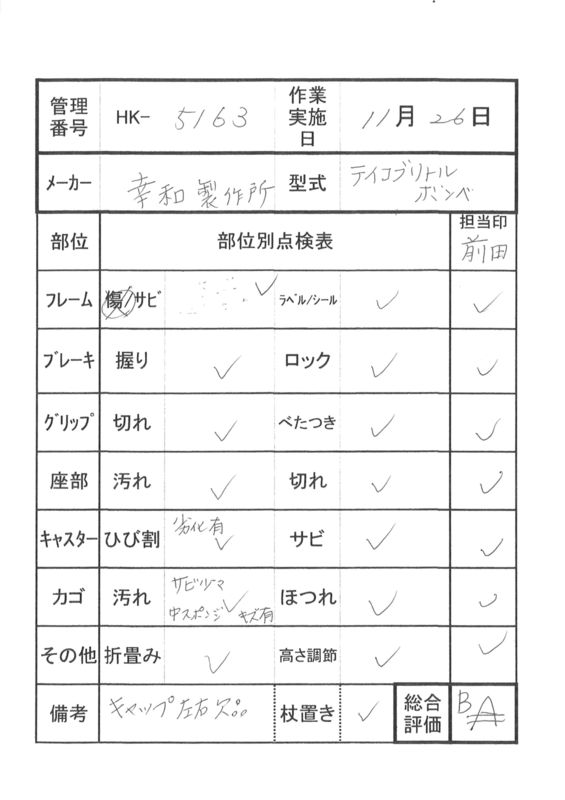 管理番号 HK- 5163 作業実施日 11月26日
メーカー 幸和製作所 型式 テイコブリトルボンベ
部位 部位別点検表 担当印 前田
フレーム 傷/サビ ✓ ラベル/シール ✓ ✓
ブレーキ 握り ✓ ロック ✓ ✓
グリップ 切れ ✓ べたつき ✓ ✓
座部 汚れ ✓ 切れ ✓ ✓
キャスター ひび割 劣化有 ✓ サビ ✓ ✓
カゴ 汚れ ✓ 中スポンジ キズ有 ほつれ ✓ ✓
その他 折畳み ✓ 高さ調節 ✓ ✓
備考 キャップ左右欠 杖置き ✓ 総合評価 B A